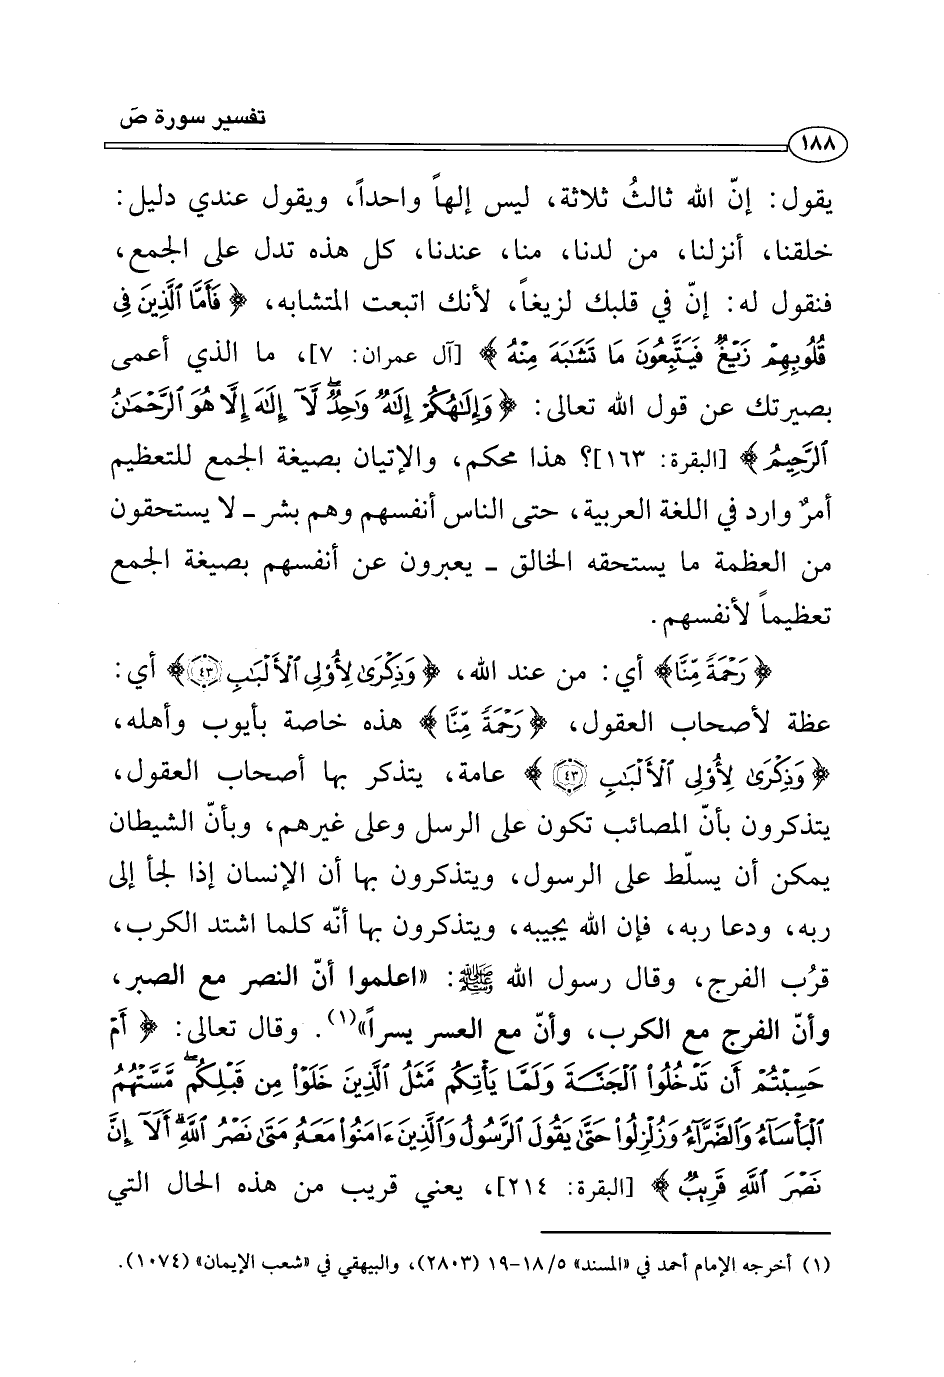 تفسير سورة صَ
١٨٨
يقول: إنّ الله ثالثُ ثلاثة، ليس إلهاً واحداً، ويقول عندي دليل:
خلقنا، أنزلنا، من لدنا، منا، عندنا، كل هذه تدل على الجمع،
فنقول له: إنّ في قلبك لزيغاً، لأنك اتبعت المتشابه، ﴿فَأَمَّا ٱلَّذِينَ فِى
قُلُوبِهِمْ زَيْغٌ فَيَتَّبِعُونَ مَا تَشَٰبَهَ مِنْهُ﴾ [آل عمران: ٧]، ما الذي أعمى
بصيرتك عن قول الله تعالى: ﴿وَإِلَٰهُكُمْ إِلَٰهٌ وَٰحِدٌ ۖ لَّآ إِلَٰهَ إِلَّا هُوَ ٱلرَّحْمَٰنُ
ٱلرَّحِيمُ﴾ [البقرة: ١٦٣]؟ هذا محكم، والإتيان بصيغة الجمع للتعظيم
أمرٌ وارد في اللغة العربية، حتى الناس أنفسهم وهم بشر ـ لا يستحقون
من العظمة ما يستحقه الخالق ـ يعبرون عن أنفسهم بصيغة الجمع
تعظيماً لأنفسهم.
﴿رَحْمَةً مِّنَّا﴾ أي: من عند الله، ﴿وَذِكْرَىٰ لِأُو۟لِى ٱلْأَلْبَٰبِ ٤٣﴾ أي:
عظة لأصحاب العقول، ﴿رَحْمَةً مِّنَّا﴾ هذه خاصة بأيوب وأهله،
﴿وَذِكْرَىٰ لِأُو۟لِى ٱلْأَلْبَٰبِ ٤٣﴾ عامة، يتذكر بها أصحاب العقول،
يتذكرون بأنّ المصائب تكون على الرسل وعلى غيرهم، وبأنّ الشيطان
يمكن أن يسلّط على الرسول، ويتذكرون بها أن الإنسان إذا لجأ إلى
ربه، ودعا ربه، فإن الله يجيبه، ويتذكرون بها أنّه كلما اشتد الكرب،
قرُب الفرج، وقال رسول الله ﷺ: «اعلموا أنّ النصر مع الصبر،
وأنّ الفرج مع الكرب، وأنّ مع العسر يسراً»(١). وقال تعالى: ﴿أَمْ
حَسِبْتُمْ أَن تَدْخُلُوا۟ ٱلْجَنَّةَ وَلَمَّا يَأْتِكُم مَّثَلُ ٱلَّذِينَ خَلَوْا۟ مِن قَبْلِكُم ۖ مَّسَّتْهُمُ
ٱلْبَأْسَآءُ وَٱلضَّرَّآءُ وَزُلْزِلُوا۟ حَتَّىٰ يَقُولَ ٱلرَّسُولُ وَٱلَّذِينَ ءَامَنُوا۟ مَعَهُۥ مَتَىٰ نَصْرُ ٱللَّهِ ۗ أَلَآ إِنَّ
نَصْرَ ٱللَّهِ قَرِيبٌ﴾ [البقرة: ٢١٤]، يعني قريب من هذه الحال التي
(١) أخرجه الإمام أحمد في «المسند» ٥/ ١٨-١٩ (٢٨٠٣)، والبيهقي في «شعب الإيمان» (١٠٧٤).